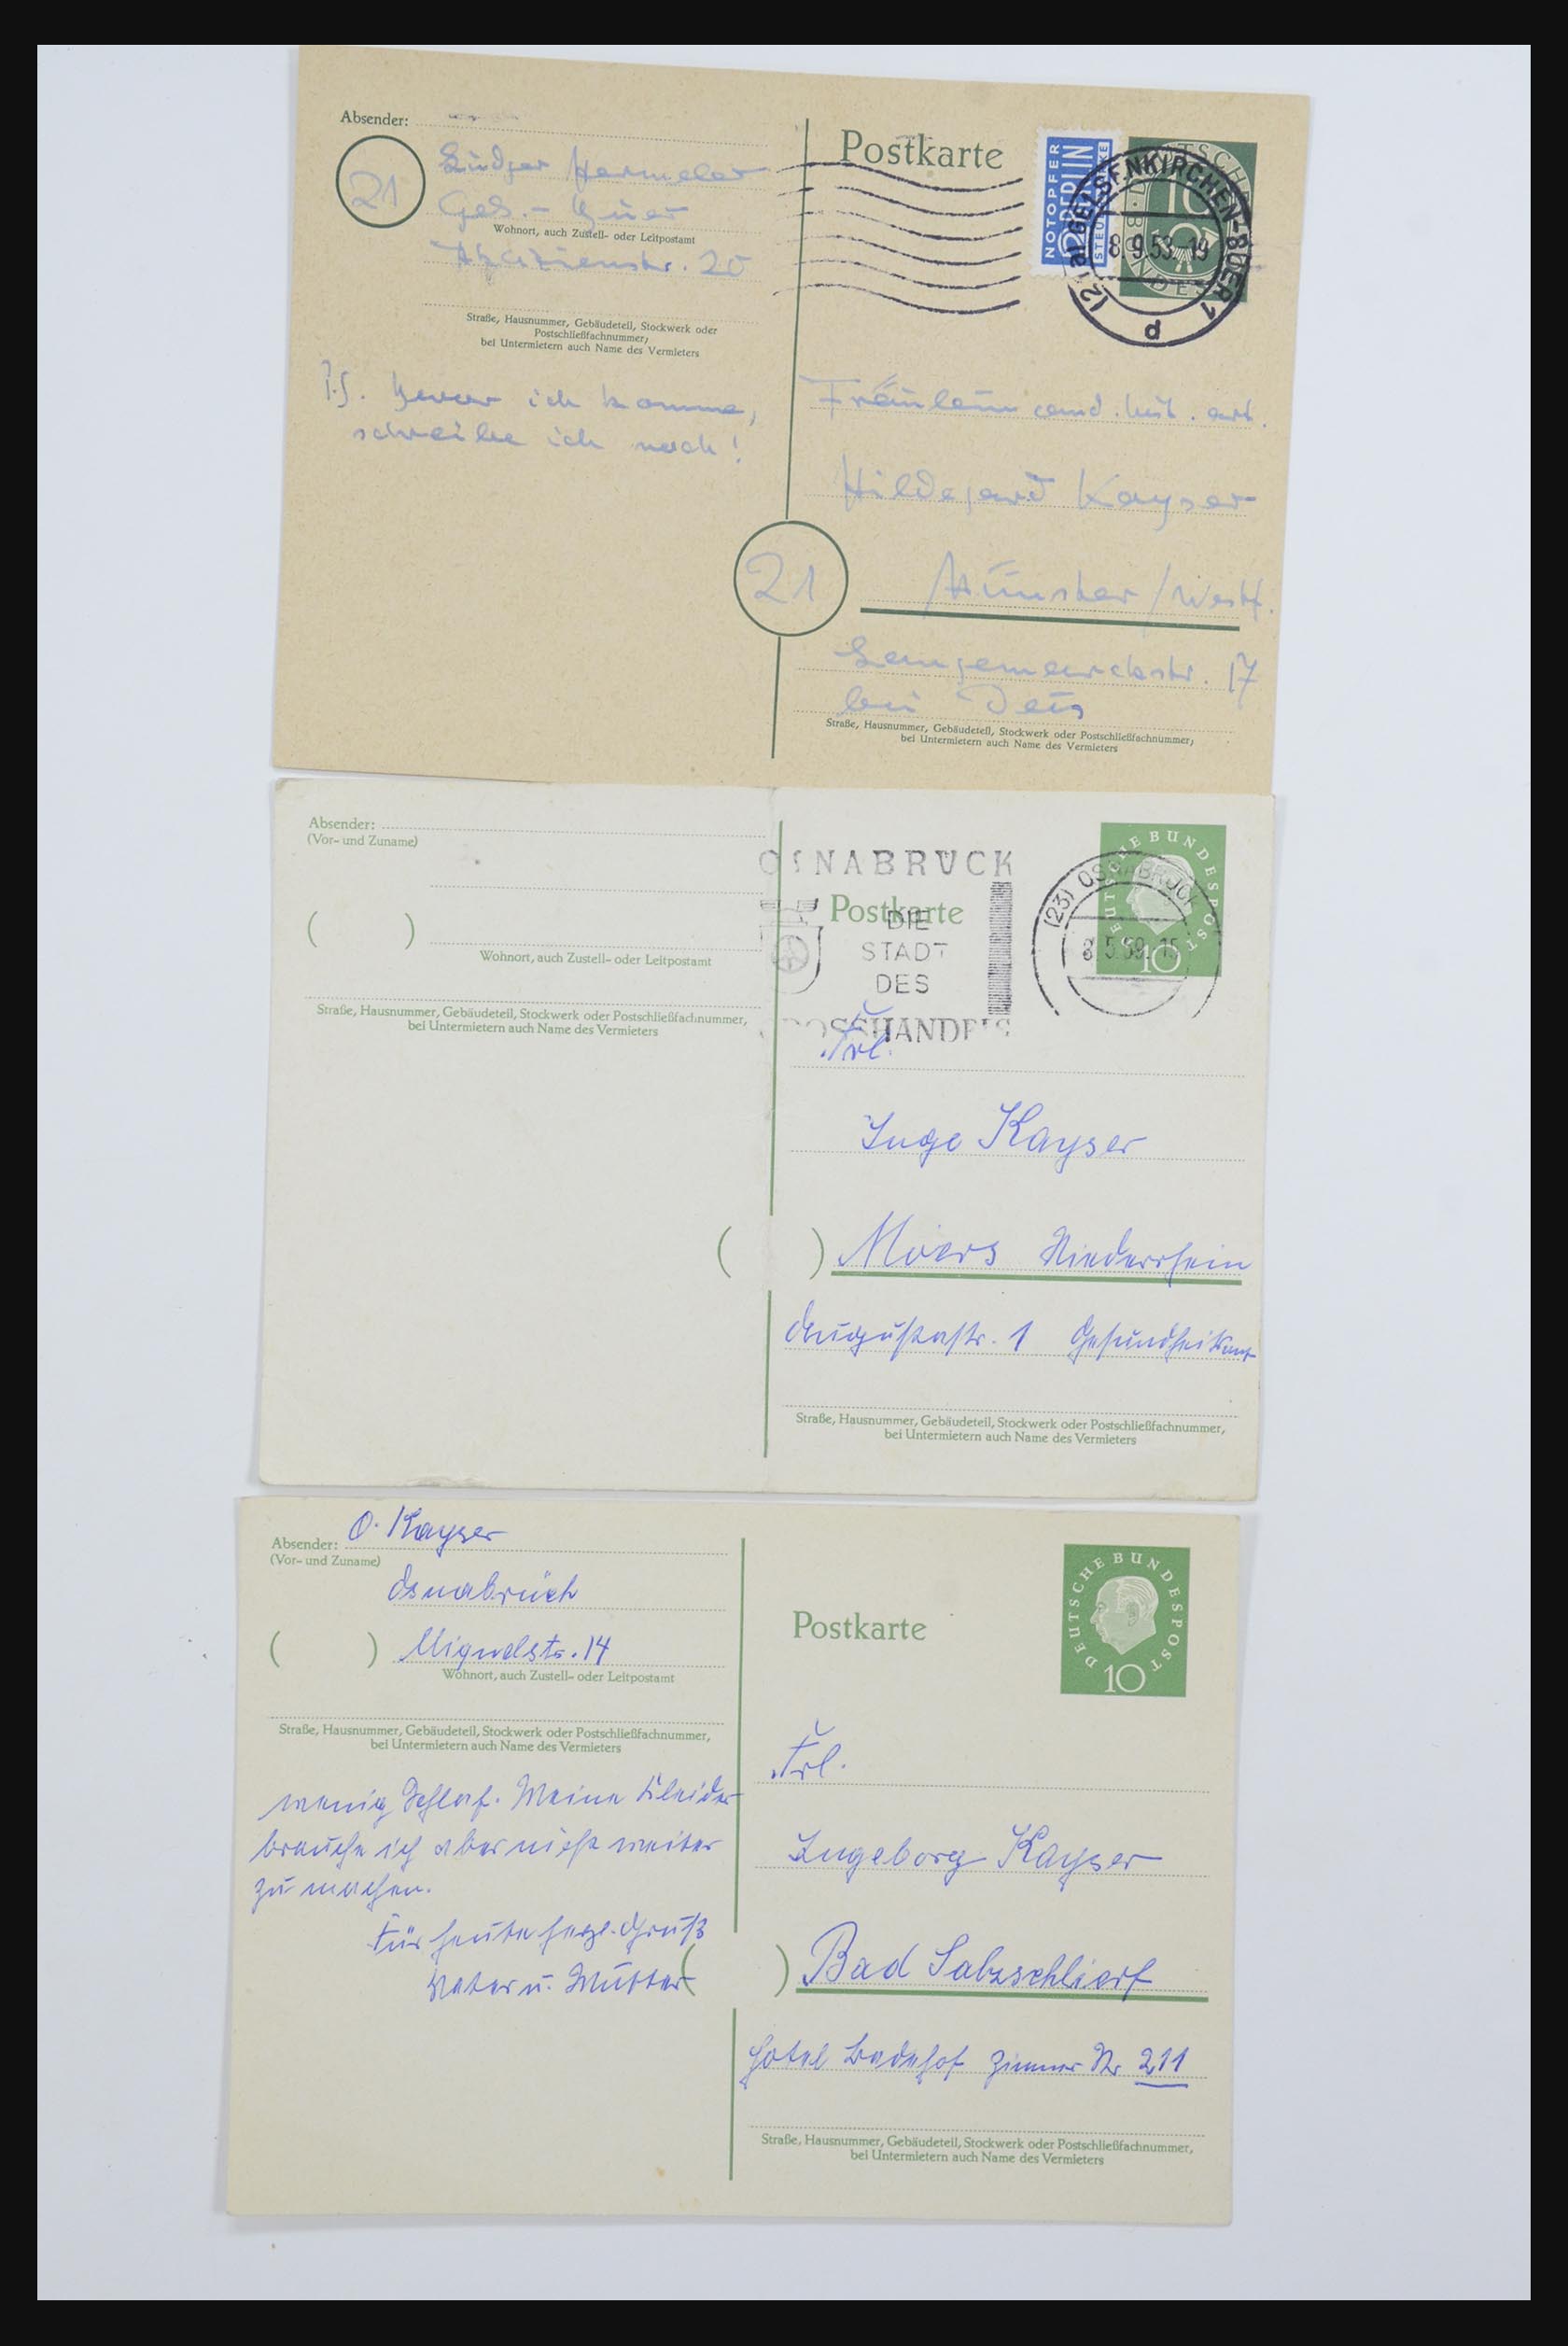 Absender:
21
Ludger Hermeler
Ges.- Buer
Wohnort, auch Zustell- oder Leitpostamt
Akazienstr. 20
Straße, Hausnummer, Gebäudeteil, Stockwerk oder
Postschließfachnummer;
bei Untermietern auch Name des Vermieters
P.S. Bevor ich komme,
schreibe ich noch!
Postkarte
NOTOPFER
2 BERLIN
STEUERMARKE
DEUTSCHE BUNDESPOST
10
(21a) GELSENKIRCHEN-BUER 1
8.9.53.-19
d
Fräulein cand.
Hildegard Kayser
21
Münster / Westf.
Langemarckstr. 17
bei
Straße, Hausnummer, Gebäudeteil, Stockwerk oder Postschließfachnummer;
bei Untermietern auch Name des Vermieters
Absender:
(Vor- und Zuname)
( )
Wohnort, auch Zustell- oder Leitpostamt
Straße, Hausnummer, Gebäudeteil, Stockwerk oder Postschließfachnummer,
bei Untermietern auch Name des Vermieters
OSNABRÜCK
DIE
STADT
DES
GROSSHANDELS
Postkarte
DEUTSCHE BUNDESPOST
10
(23) OSNABRÜCK
8.5.59.-15
Frl.
Inge Kayser
( ) Moers Niederrhein
Augustastr. 1 Gesundheitsamt
Straße, Hausnummer, Gebäudeteil, Stockwerk oder Postschließfachnummer,
bei Untermietern auch Name des Vermieters
Absender: O. Kayser
(Vor- und Zuname)
Osnabrück
( ) Miquelstr. 14
Wohnort, auch Zustell- oder Leitpostamt
Straße, Hausnummer, Gebäudeteil, Stockwerk oder Postschließfachnummer,
bei Untermietern auch Name des Vermieters
wenig Schlaf. Meine Kleider
brauche ich aber nicht weiter
zu machen.
Für heute herzl. Gruß
Vater u. Mutter
Postkarte
DEUTSCHE BUNDESPOST
10
Frl.
Ingeborg Kayser
( ) Bad Salzschlierf
Hotel Badehof Zimmer Nr 211
Straße, Hausnummer, Gebäudeteil, Stockwerk oder Postschließfachnummer,
bei Untermietern auch Name des Vermieters